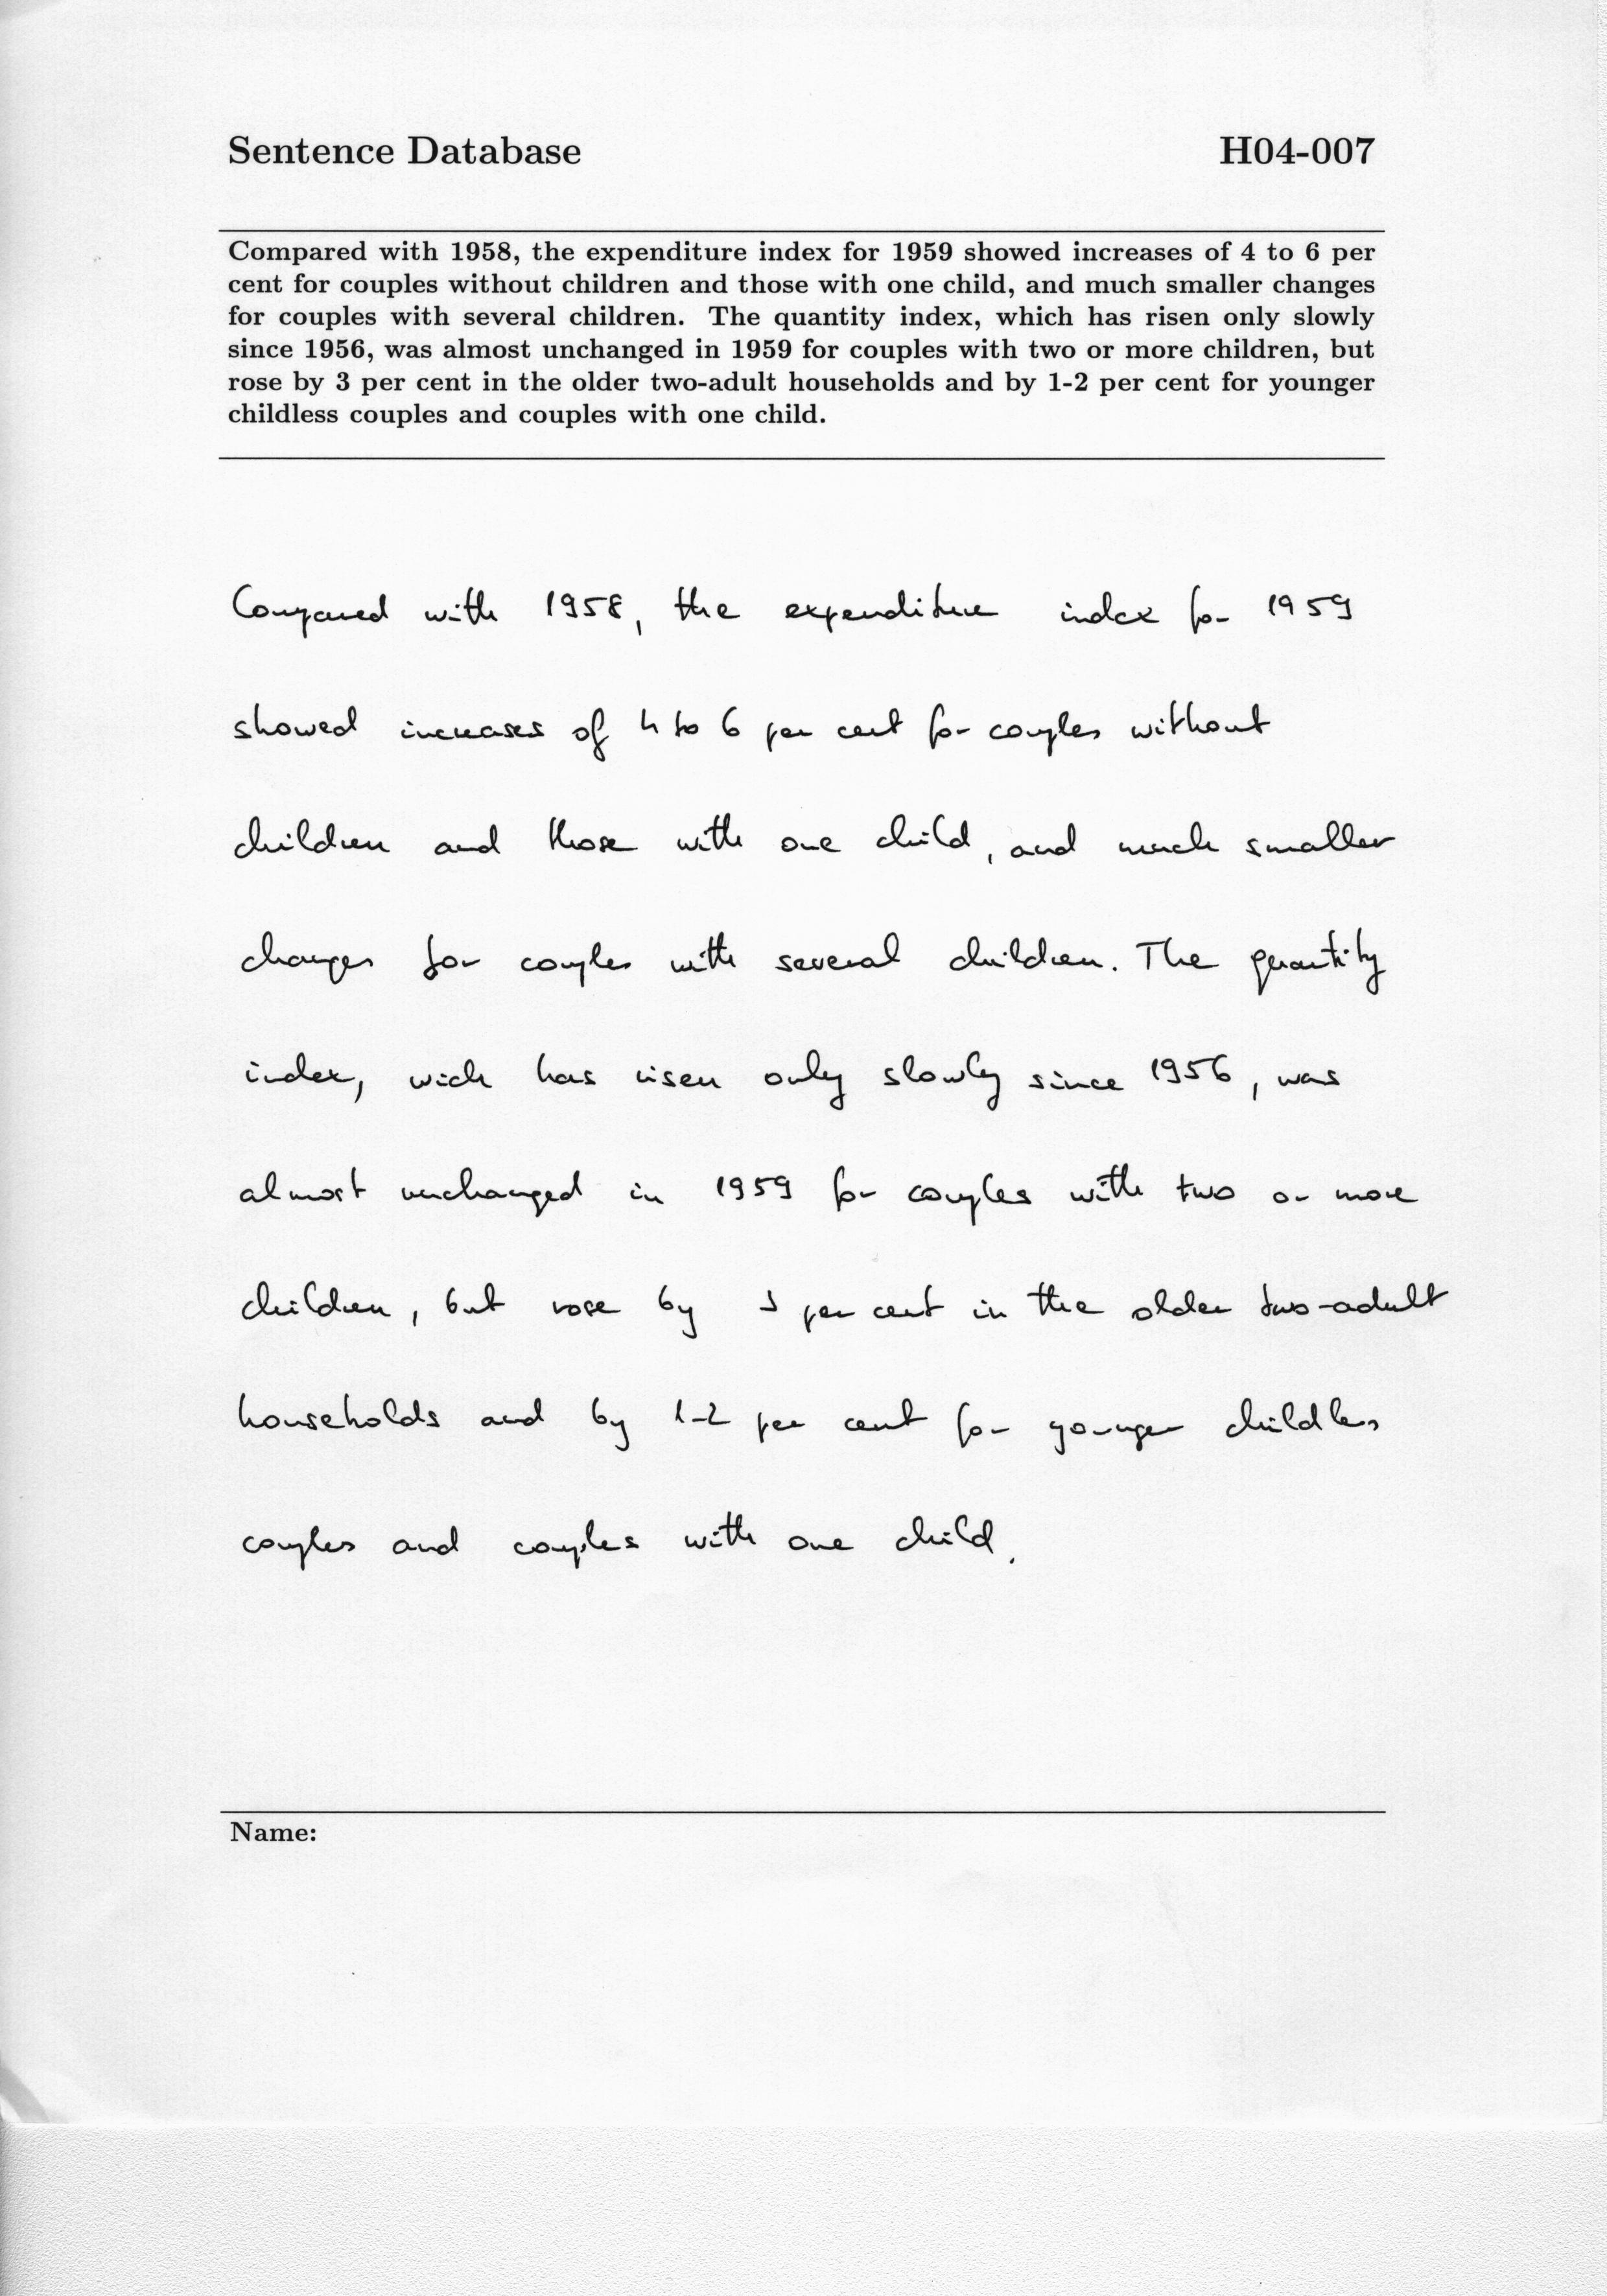 Sentence Database H04-007
Compared with 1958, the expenditure index for 1959 showed increases of 4 to 6 per
cent for couples without children and those with one child, and much smaller changes
for couples with several children. The quantity index, which has risen only slowly
since 1956, was almost unchanged in 1959 for couples with two or more children, but
rose by 3 per cent in the older two-adult households and by 1-2 per cent for younger
childless couples and couples with one child.
Compared with 1958, the expenditure index for 1959
showed increases of 4 to 6 per cent for couples without
children and those with one child, and much smaller
changes for couples with several children. The quantity
index, wich has risen only slowly since 1956, was
almost unchanged in 1959 for couples with two or more
children, but rose by 3 per cent in the older two-adult
households and by 1-2 per cent for younger childless
couples and couples with one child.
Name: